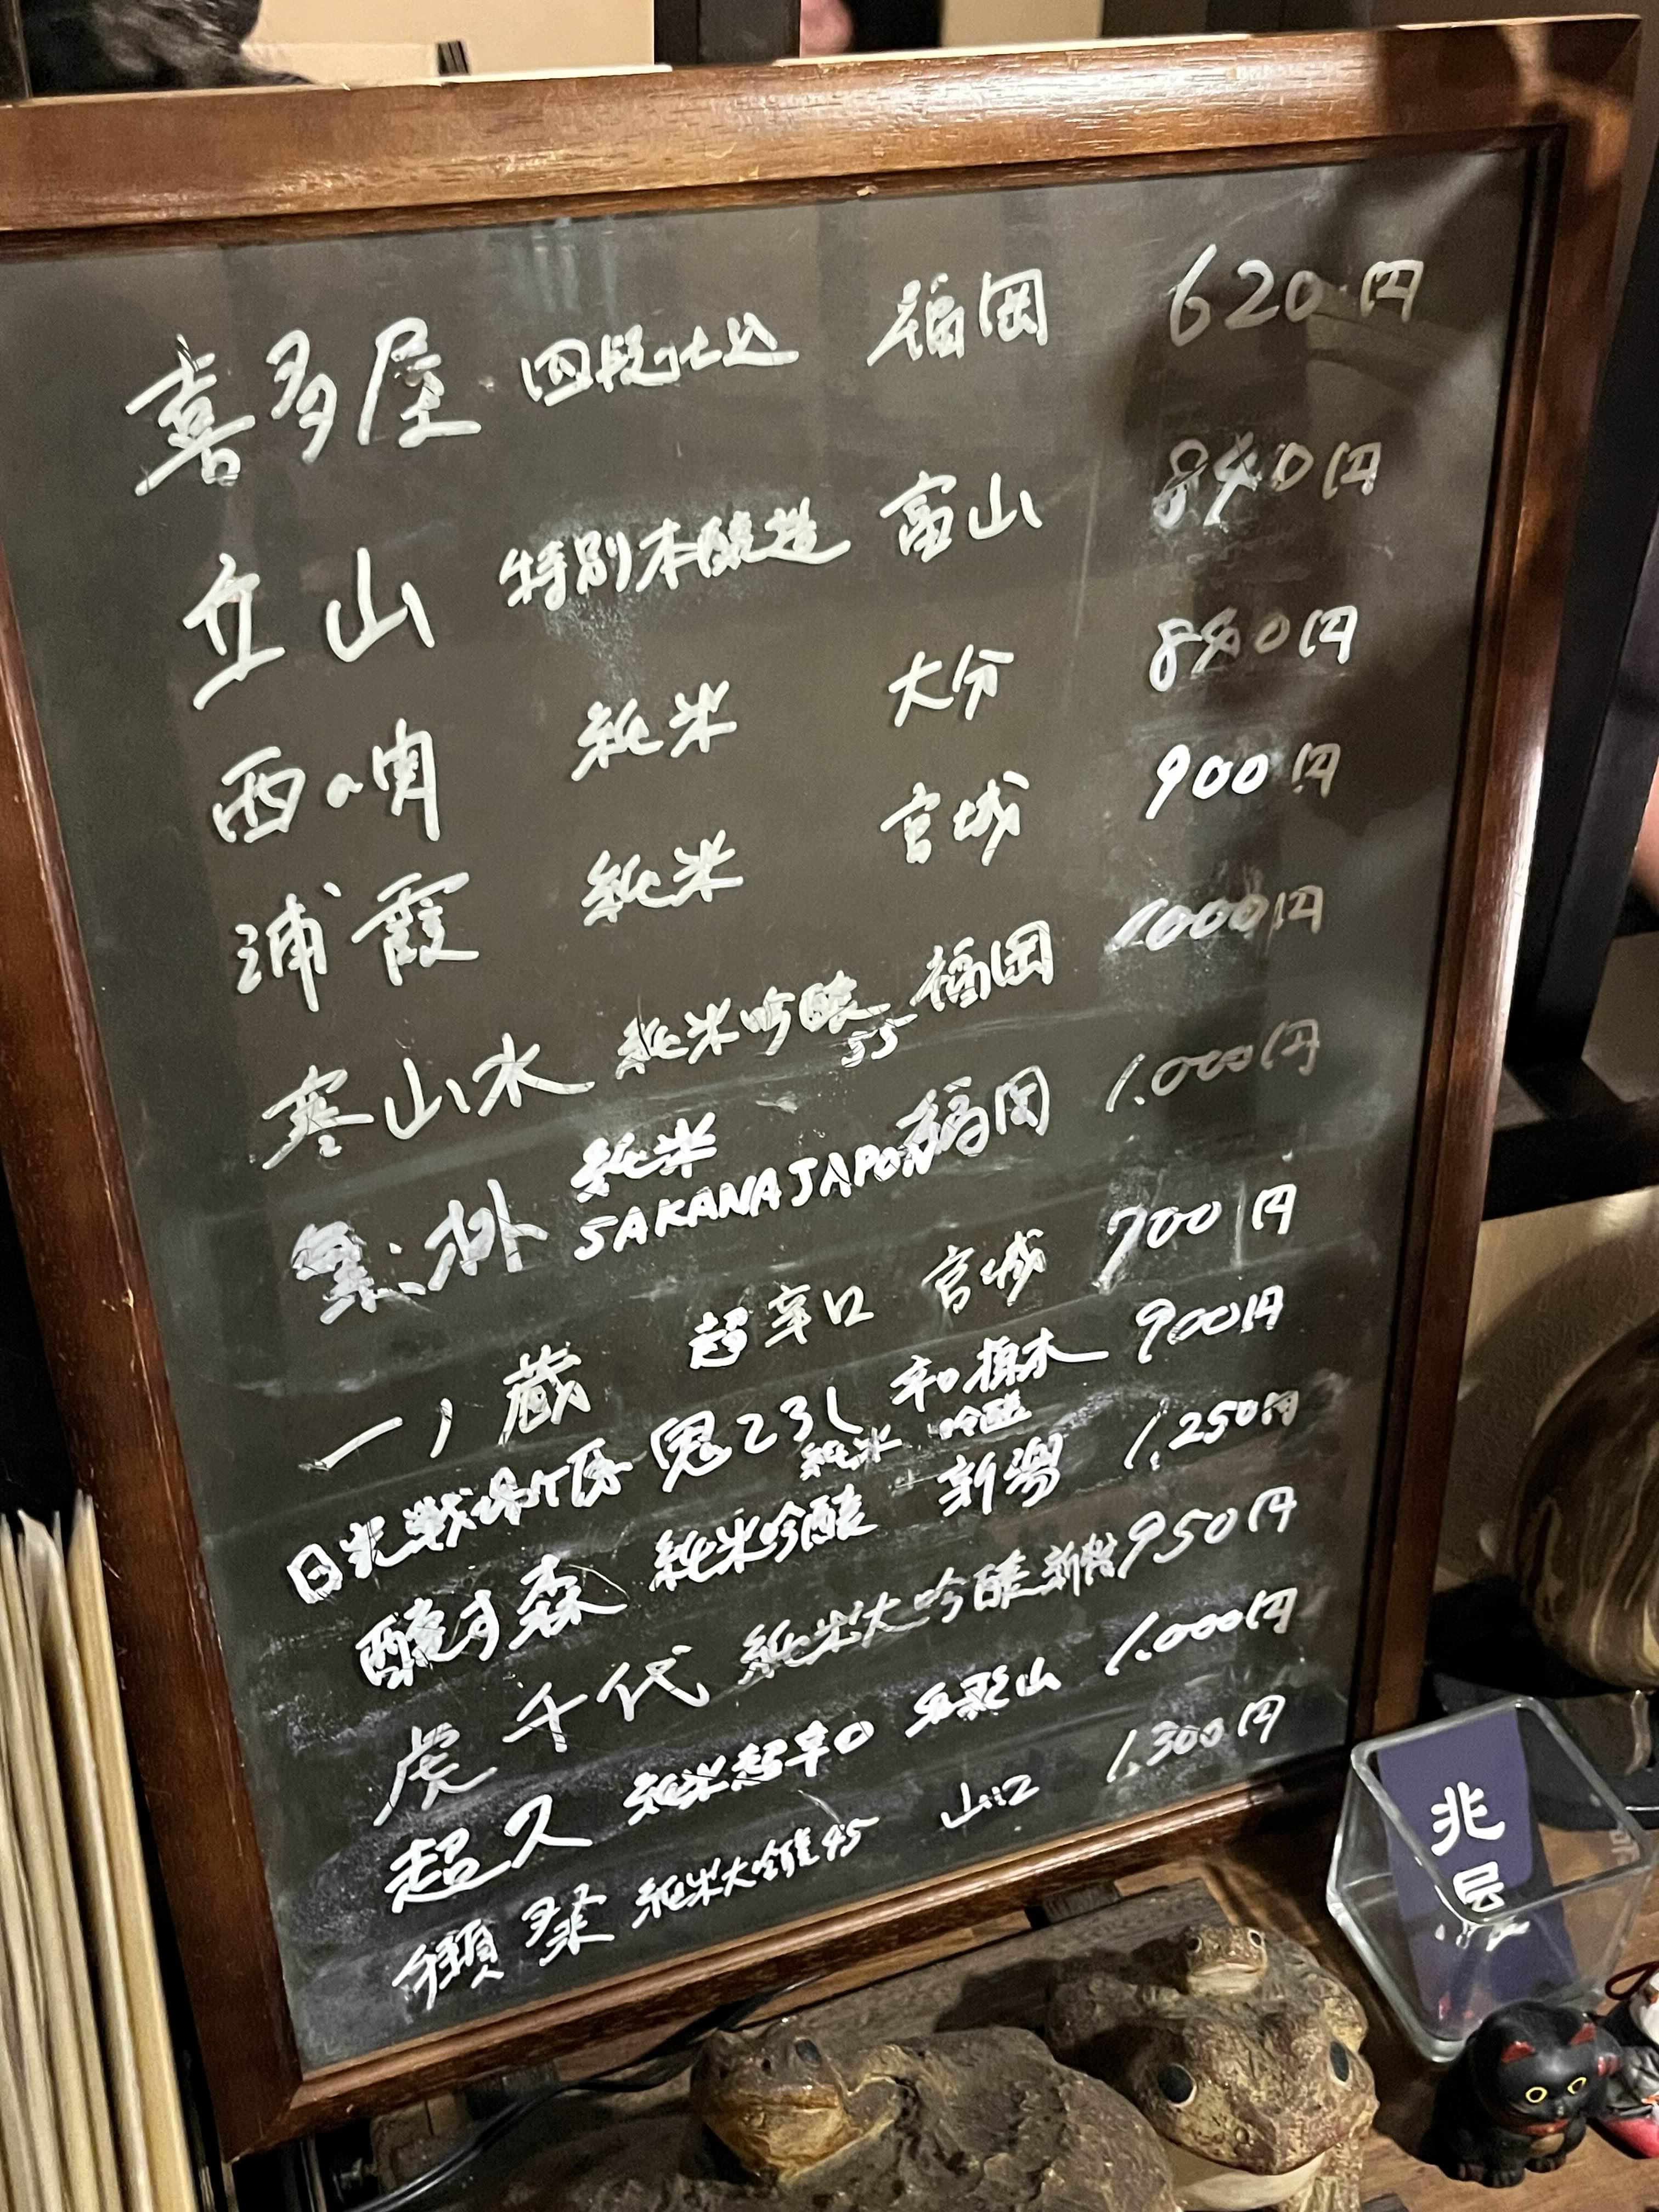 喜多屋 四段仕込 福岡 620円
立山 特別本醸造 富山 840円
西の関 純米 大分 840円
浦霞 純米 宮城 900円
寒山水 純米吟醸 55 福岡 1000円
純米
SAKANA JAPON 福岡 1.000円
一ノ蔵 超辛口 宮城 700円
日光戦場ヶ原 鬼ころし 辛口 栃木 900円
純米 吟醸
醸す森 純米吟醸 新潟 1.250円
虎千代 純米大吟醸 新潟 950円
超久 純米超辛口 和歌山 1.000円
獺祭 純米大吟醸45 山口 1.300円
兆